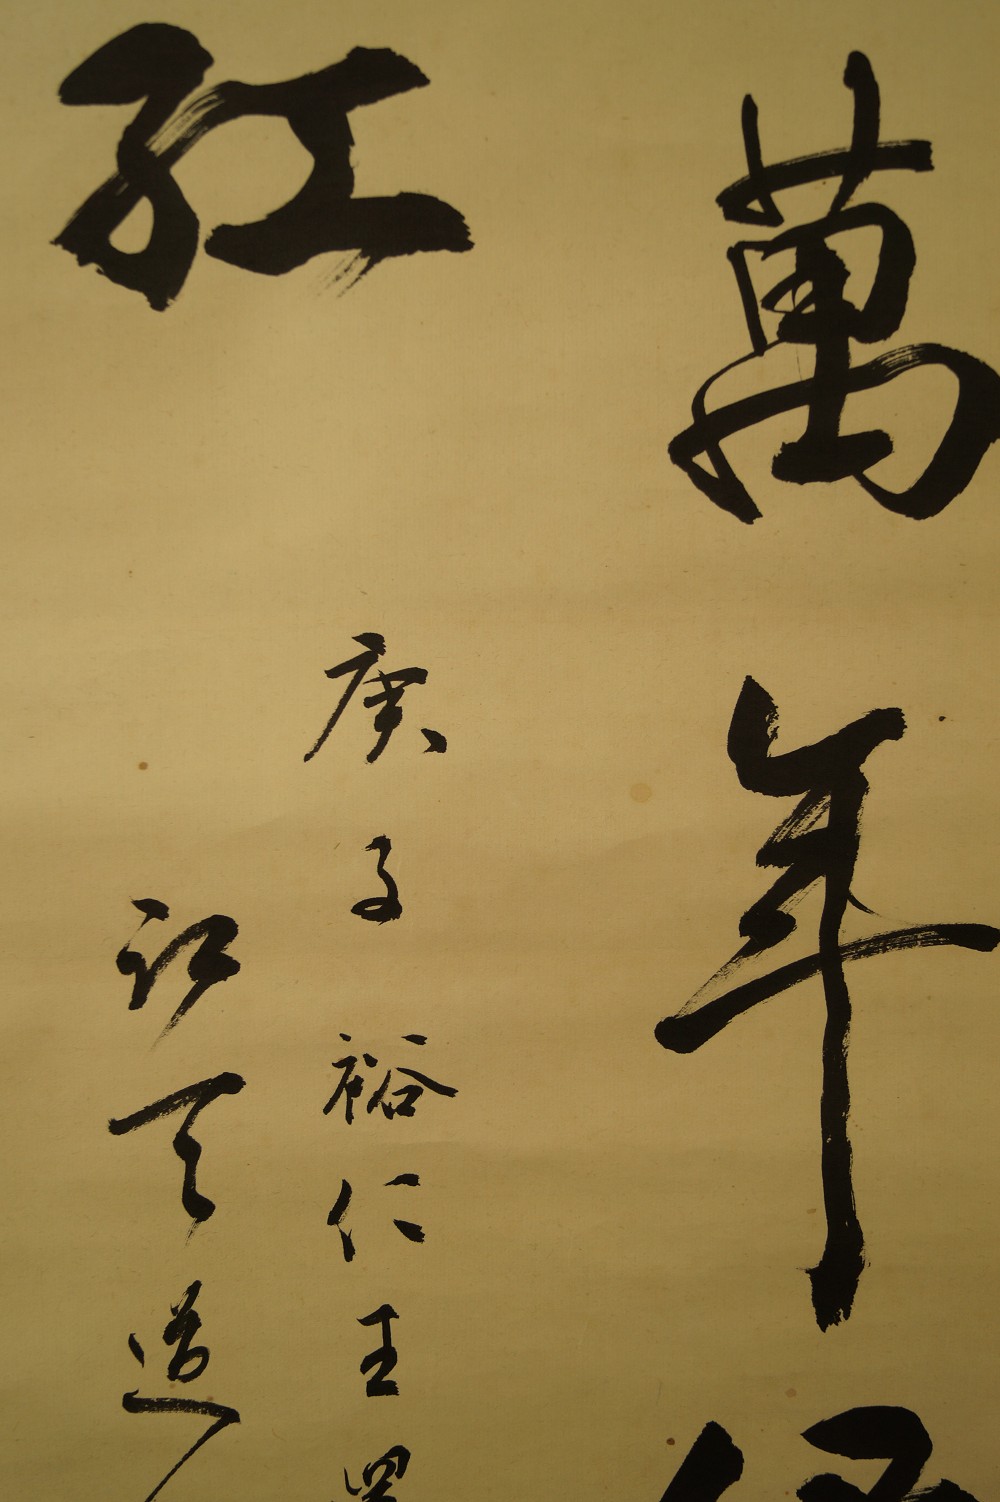 萬年
紅
庚子裕仁王
天道